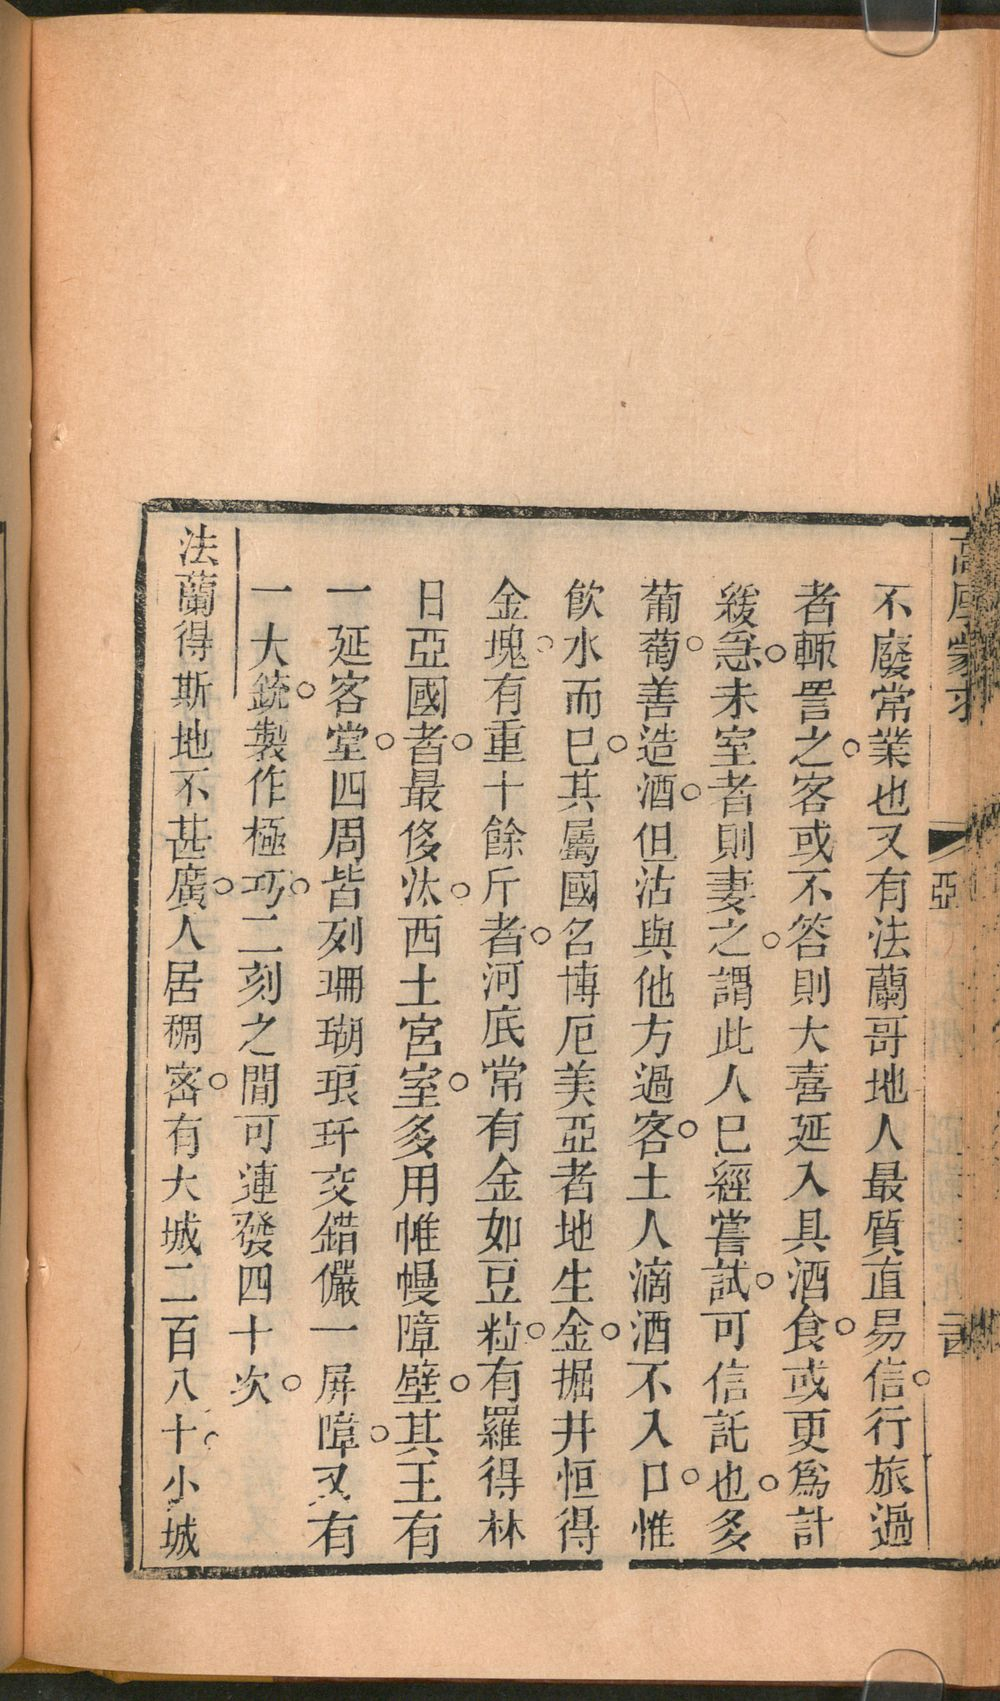 不廢常業也又有法蘭哥地人最質直易信。行旅過
者輒詈之。客或不答則大喜延入具酒食。或更爲計
緩急。未室者則妻之。謂此人已經嘗試。可信託也。多
葡萄。善造酒。但沽與他方過客。土人滴酒不入口。惟
飲水而已。其屬國名博厄美亞者地生金。掘井恒得
金塊。有重十餘斤者。河底常有金如豆粒。有羅得林
日亞國者。最侈汰。西土宮室。多用帷幔障壁。其王有
一延客堂。四周皆列珊瑚琅玕交錯儼一屏障。又有
一大銃。製作極巧。二刻之間可連發四十次。
法蘭得斯地不甚廣。人居稠密。有大城二百八十。小城
亞